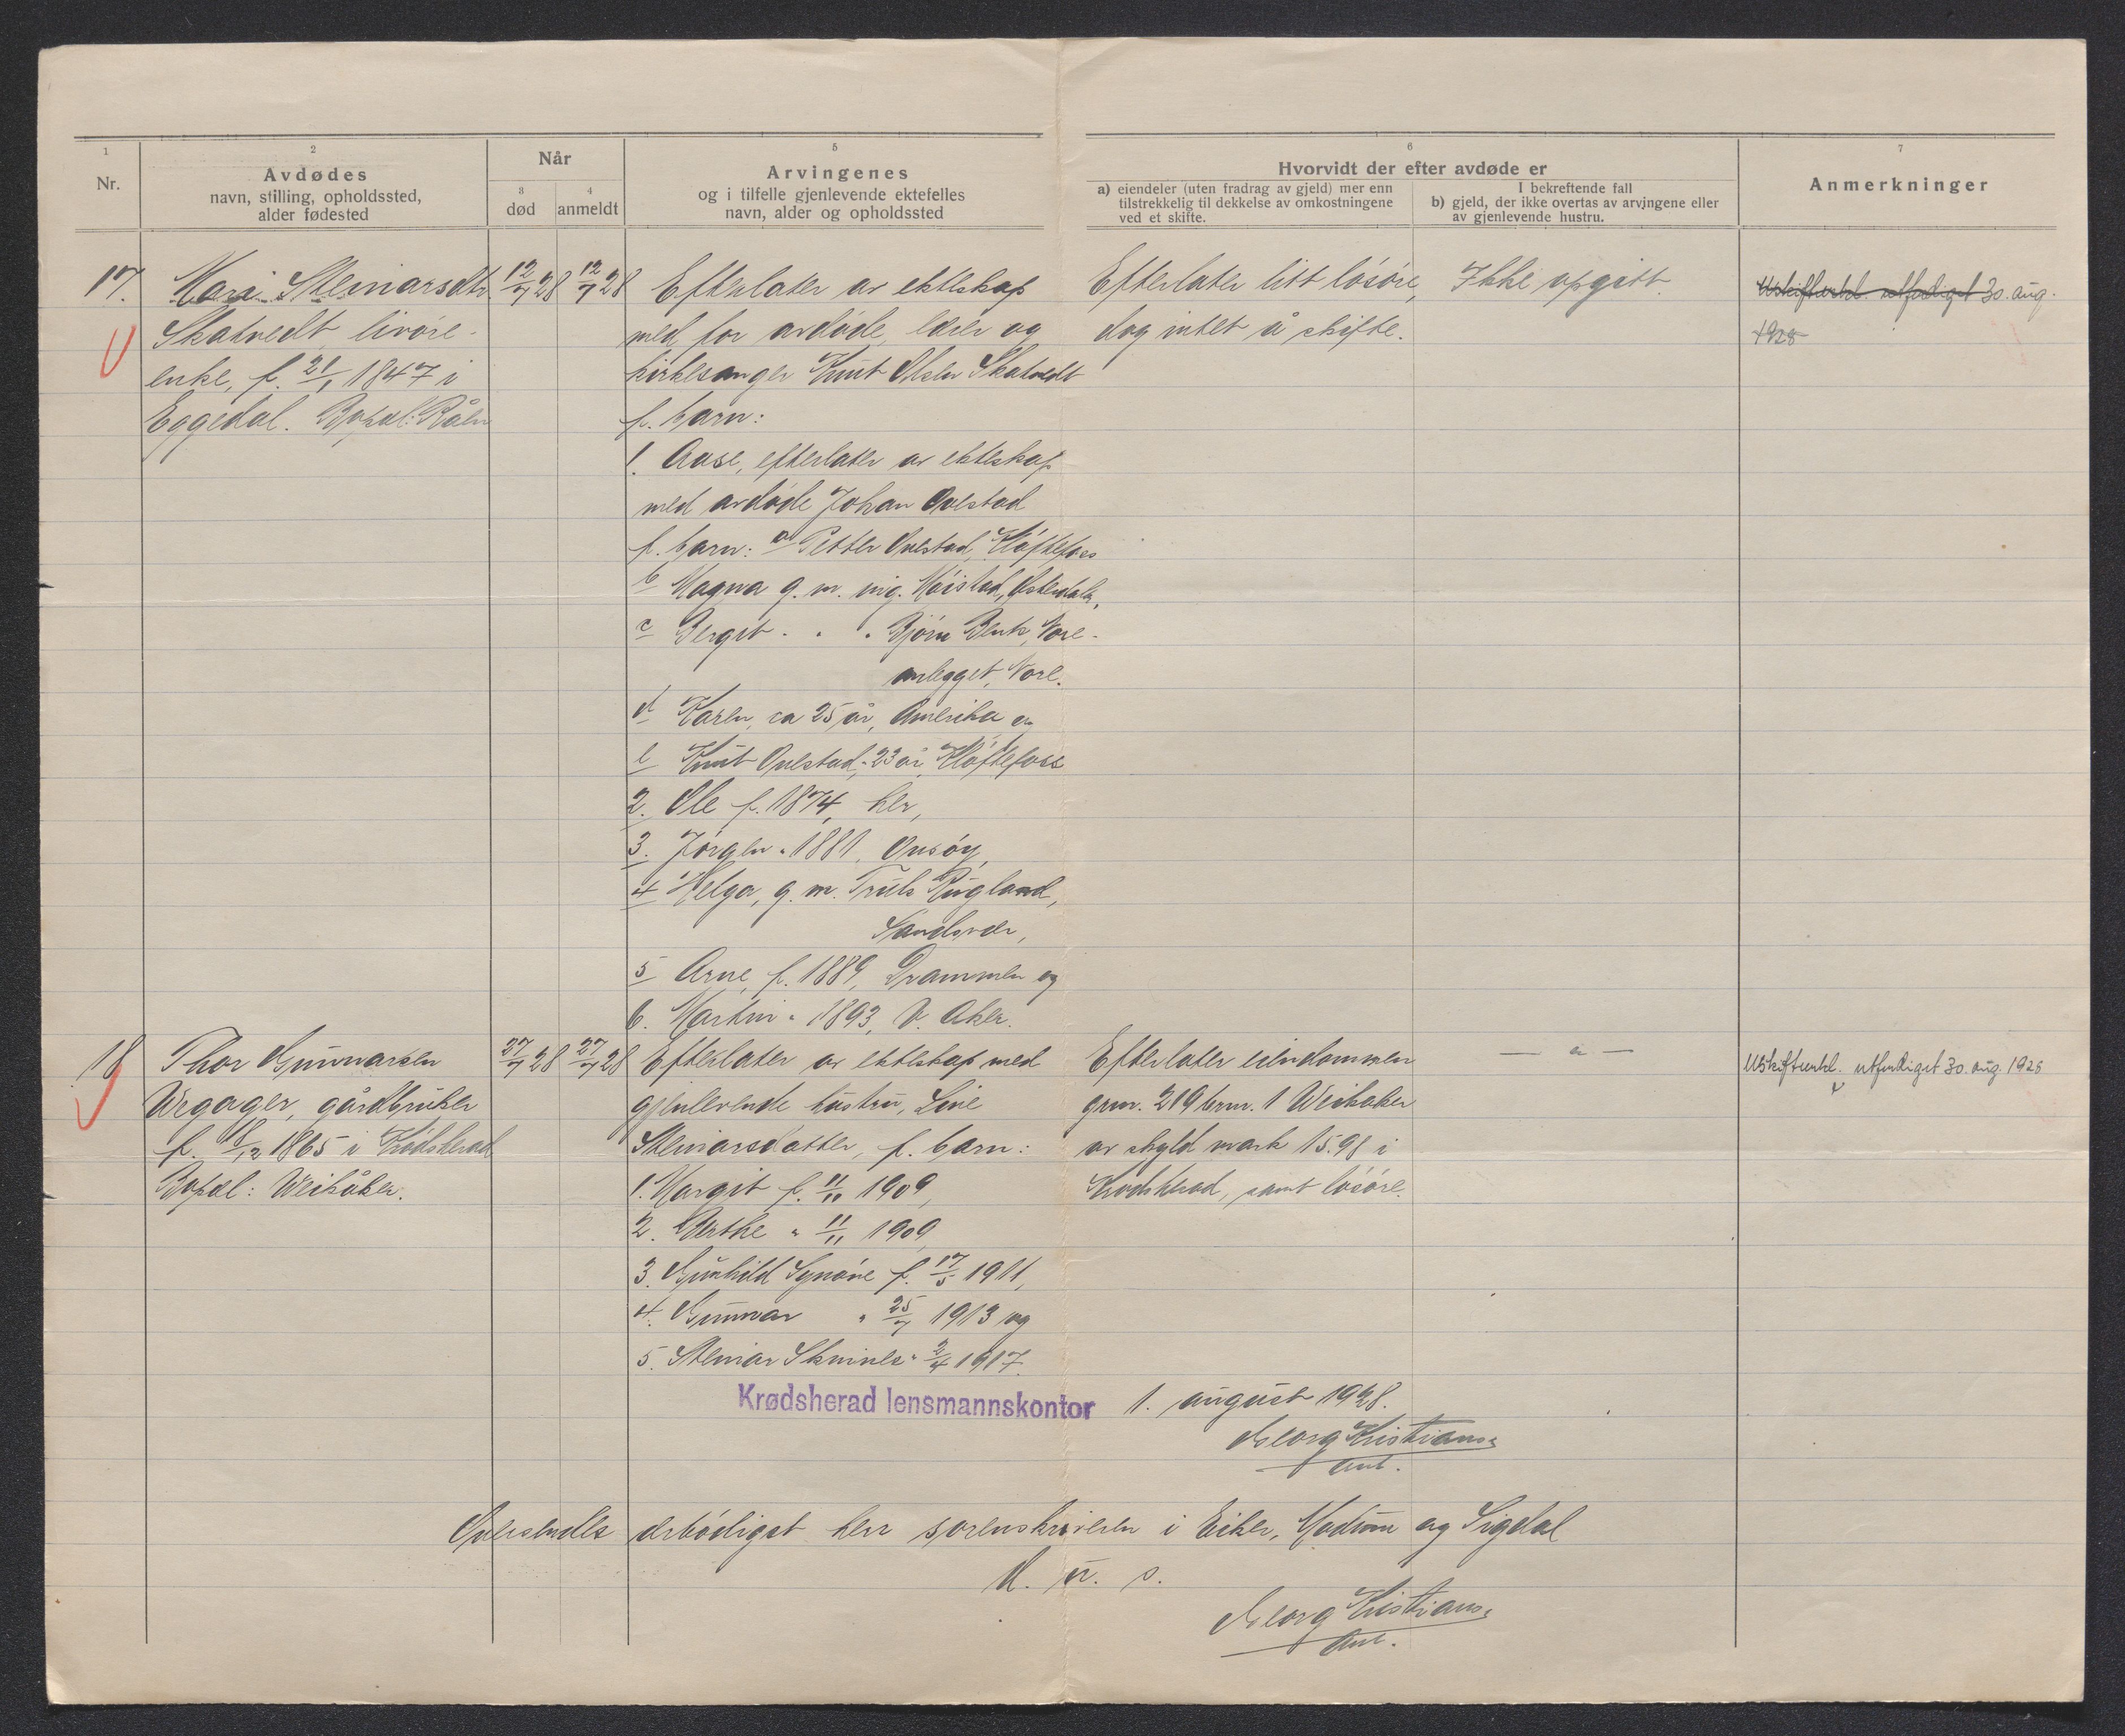 1
Nr.
2
Avdødes
navn, stilling, opholdssted,
alder fødested
Når
3
død
4
anmeldt
5
Arvingenes
og i tilfelle gjenlevende ektefelles
navn, alder og opholdssted
6
Hvorvidt der efter avdøde er
a) eiendeler (uten fradrag av gjeld) mer enn
tilstrekkelig til dekkelse av omkostningene
ved et skifte.
I bekreftende fall
b) gjeld, der ikke overtas av arvingene eller
av gjenlevende hustru.
7
Anmerkninger
17.
Mari Steinarsdtr.
Skatvedt, livøre-
enke, f. 21/1 1847 i
Eggedal. Bopæl: Råen
12/7 28
12/7 28
Efterlater av ekteskap
med før avdøde lærer og
kirkesanger Knut Olsen Skatvedt
f. barn:
1. Aase, efterlater av ekteskap
med avdøde Johan Ovestad
f. barn: a Petter Ovestad, Kløftefoss
b Magna g. m. ing. Møistad, Østerdalen,
c Bergit " " " Bjørn Blerk, Nore-
anlegget, Nore.
d Karen, ca 25 år, Amerika og
e Knut Ovestad, 23 år, Kløftefoss
2. Ole f. 1874, her,
3. Jørgen " 1881, Onsøy,
4 Helga, g. m. Truls Rugland,
Sandsvær,
5 Arne, f. 1889, Drammen og
6. Martin " 1893, V. Aker.
Efterlater litt løsøre,
dog intet å skifte.
Ikke opgitt.
Uskifteatt. utferdiget 30. aug.
1928
18
Thor Gunnarsen
Urgager, gårdbruker
f. 18/12 1865 i Krødsherad
Bopæl: Veikåker.
27/7 28
27/7 28
Efterlater av ekteskap med
gjenlevende hustru, Live
Steinarsdatter, f. barn:
1. Margit f. 11/11 1909,
2. Berthe " 11/11 1909,
3. Gunhild Synøve f. 17/5 1911,
4. Gunnar " 25/7 1913 og
5. Steinar " 2/4 1917.
Efterlater eiendommen
grnr. 219 brnr. 1 Weikaker
av skyld mark 15.98 i
Krødsherad, samt løsøre.
— " —
Uskifteattl. utferdiget 30. aug. 1928
Krødsherad lensmannskontor 1. august 1928.
Georg Kristians.
ant.
Oversendes ærbødigst herr sorenskriveren i Eiker, Modum og Sigdal
D. u. s.
Georg Kristians.
ant.